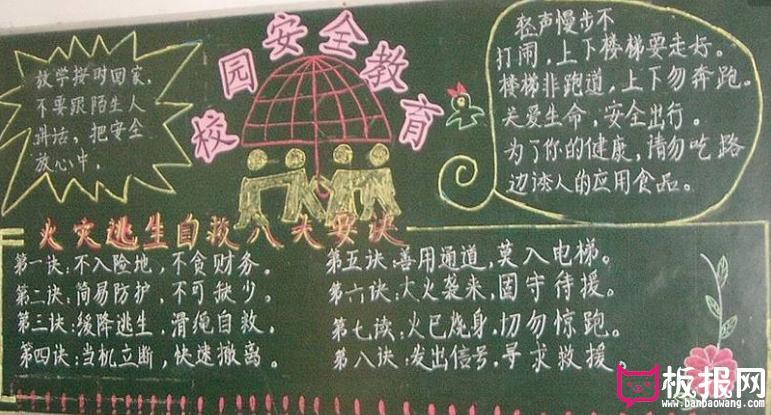 校园安全教育
放学按时回家，
不要跟陌生人
讲话，把安全
放心中，
轻声慢步不
打闹，上下楼梯要走好。
楼梯非跑道，上下勿奔跑。
关爱生命，安全出行。
为了你的健康，请勿吃路
边诱人的应用食品。
火灾逃生自救八大要诀
第一诀:不入险地，不贪财务。
第二诀:简易防护，不可缺少。
第三诀:缓降逃生，滑绳自救，
第四诀:当机立断，快速撤离。
第五诀:善用通道，莫入电梯。
第六诀:大火袭来，固守待援。
第七诀:火已烧身，切勿惊跑。
第八诀:发出信号，寻求救援。
板报网
www.banbaowang.com